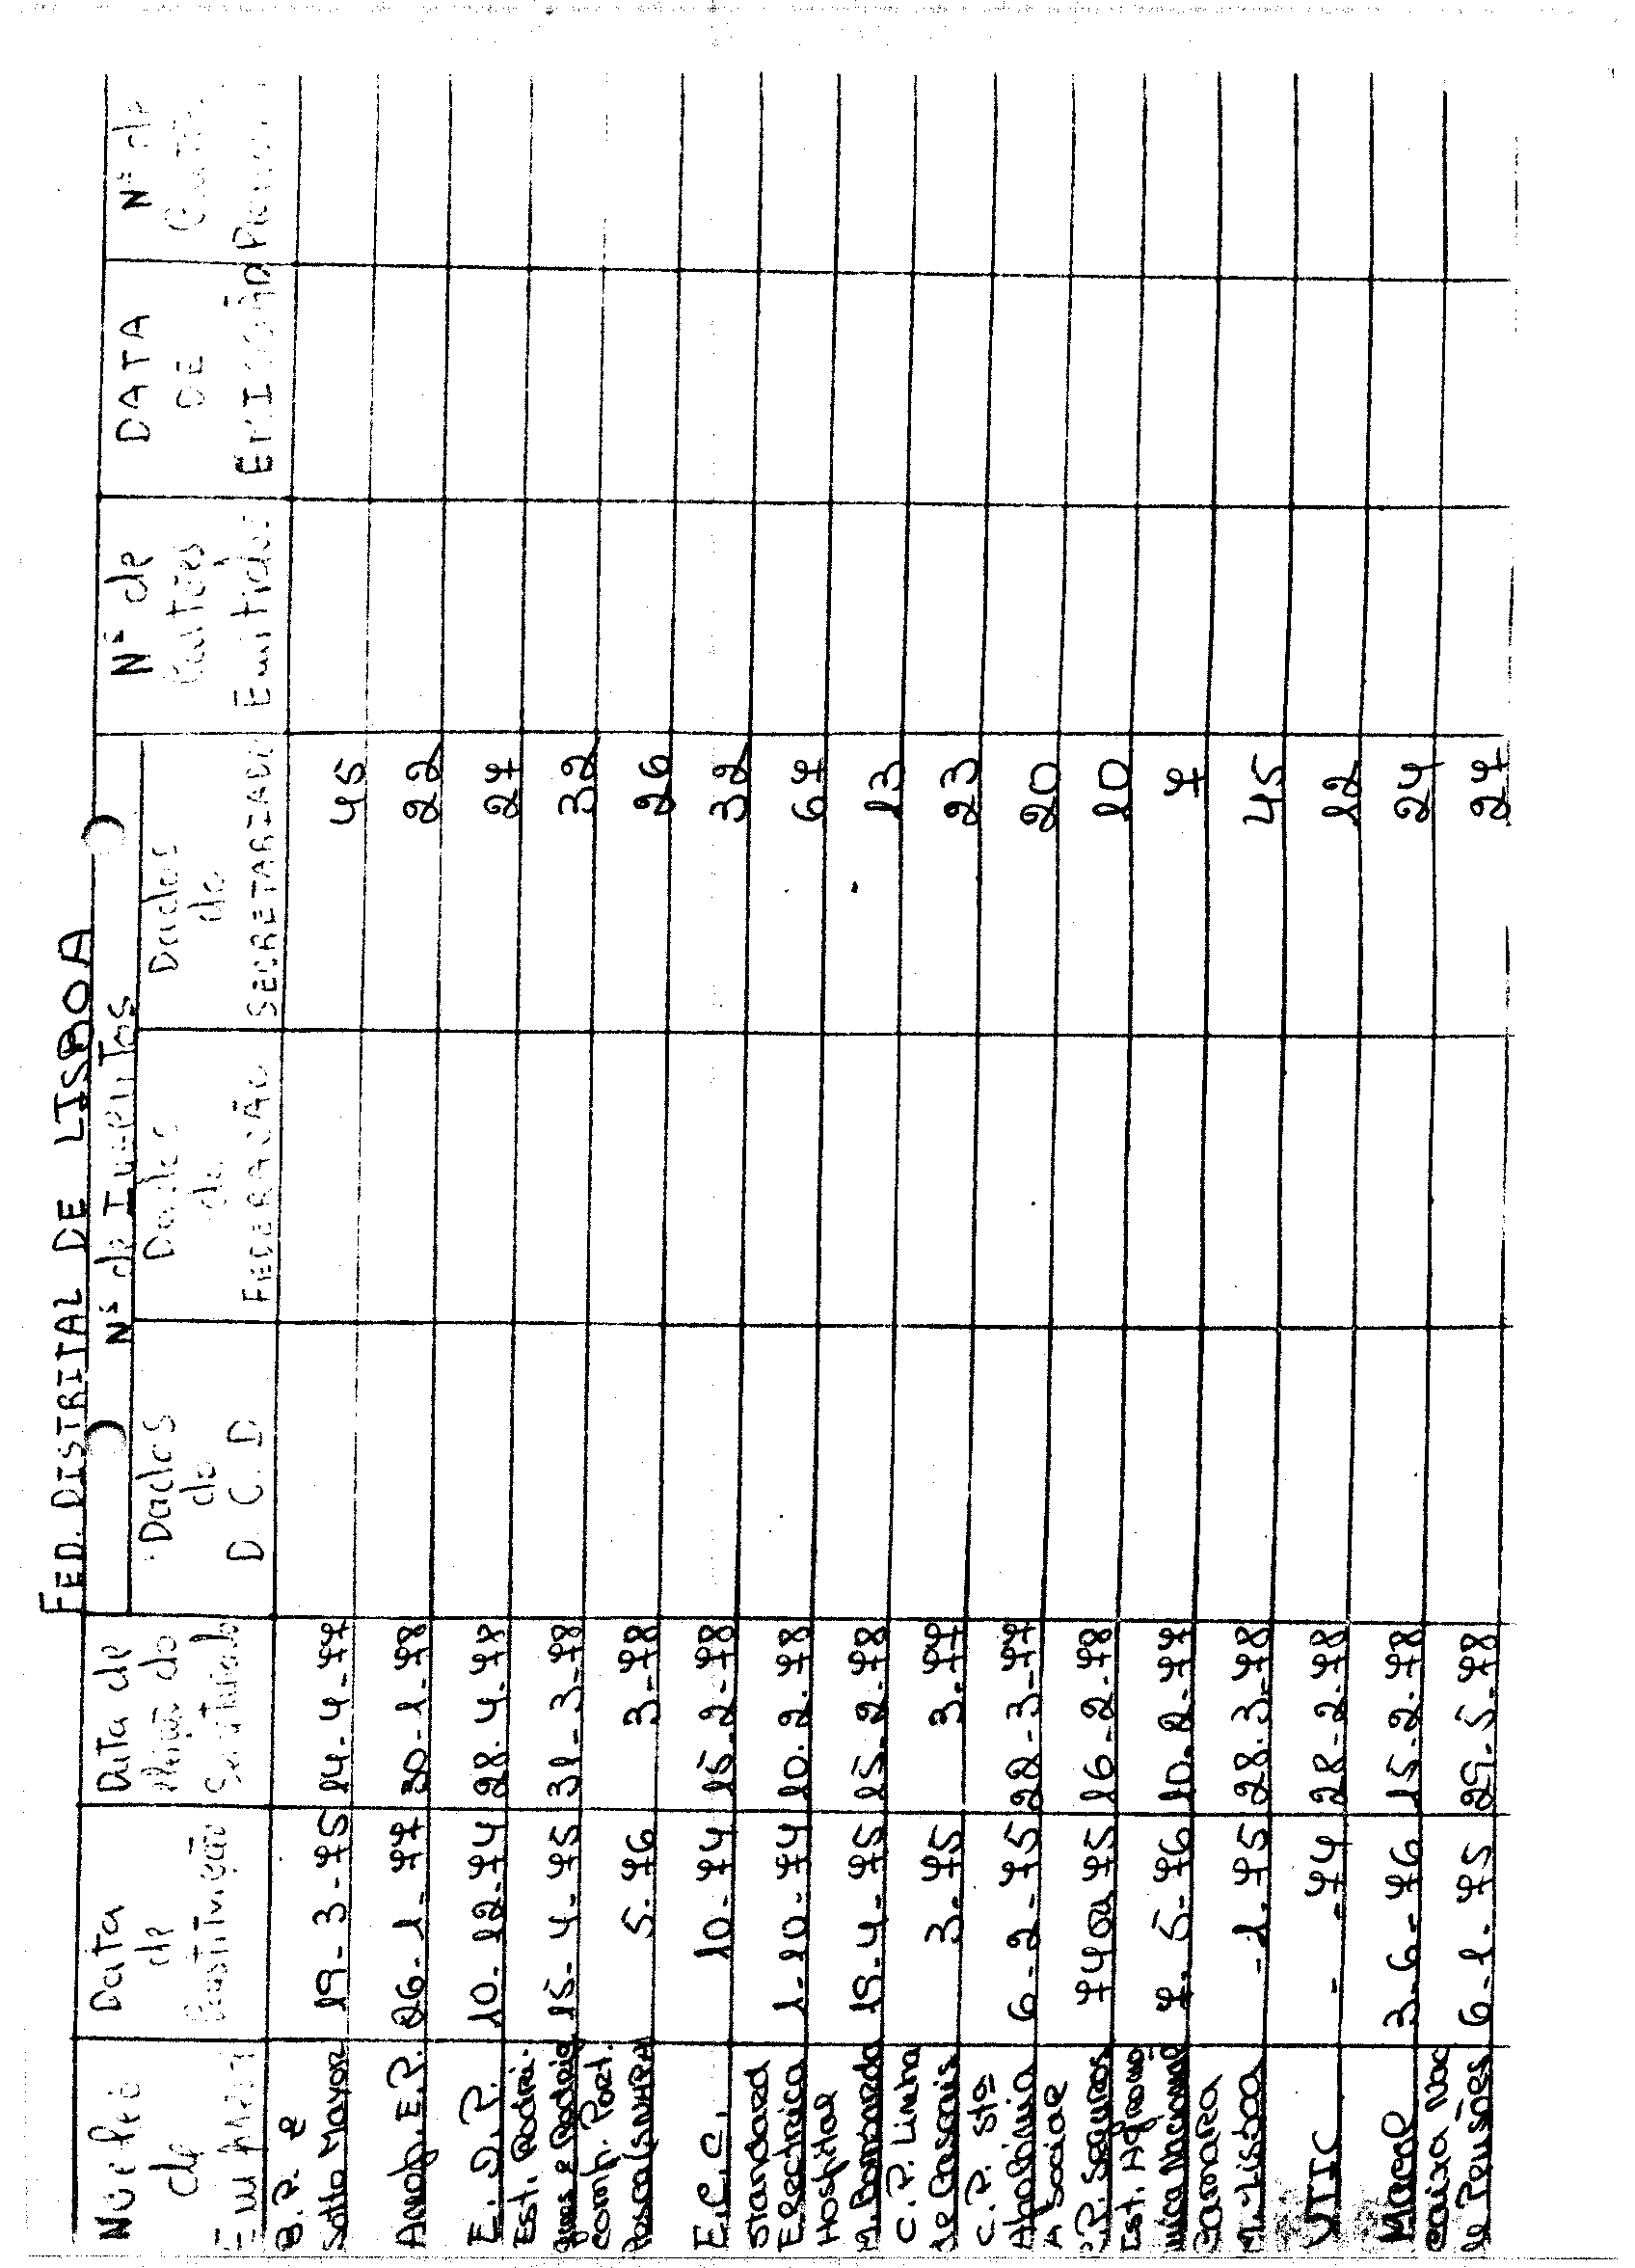 FED. DISTRITAL DE LISBOA
Núcleo de
Data de
Data de
Nº de Inscritos
Nº de
DATA DE EMISSÃO
Nº de
Dados da D C D
Dados da FEDERAÇÃO
Dados do SECRETARIADO
Emitidos
B. P. e Sotto Mayor 19-3-75 14-4-77 45
Anop. E.P. 26-1-77 30-1-78 22
E. D. P. 10-12-74 28-4-78 27
Est. Rodri. 15-4-75 31-3-78 32
Comp. Port. Pesca (SNAPA) 5-76 3-78 26
E.C.C. 10-74 15-2-78 32
Standard Electrica 1-10-74 10-2-78 67
Hospital M. Bombarda 19-4-75 15-2-78 13
C. P. Linha de Cascais 3-75 3-77 23
C. P. Stª Apolónia 6-2-75 28-3-77 20
A Social C.P. Seguros 74 ou 75 16-2-78 10
Est. Agronómica Nacional 7-5-76 10-2-77 7
Camara M. Lisboa -1-75 28-3-78 45
UTIC - -74 28-2-78 12
Macol 3-6-76 15-2-78 24
Caixa Nac de Pensões 6-1-75 29-5-78 27